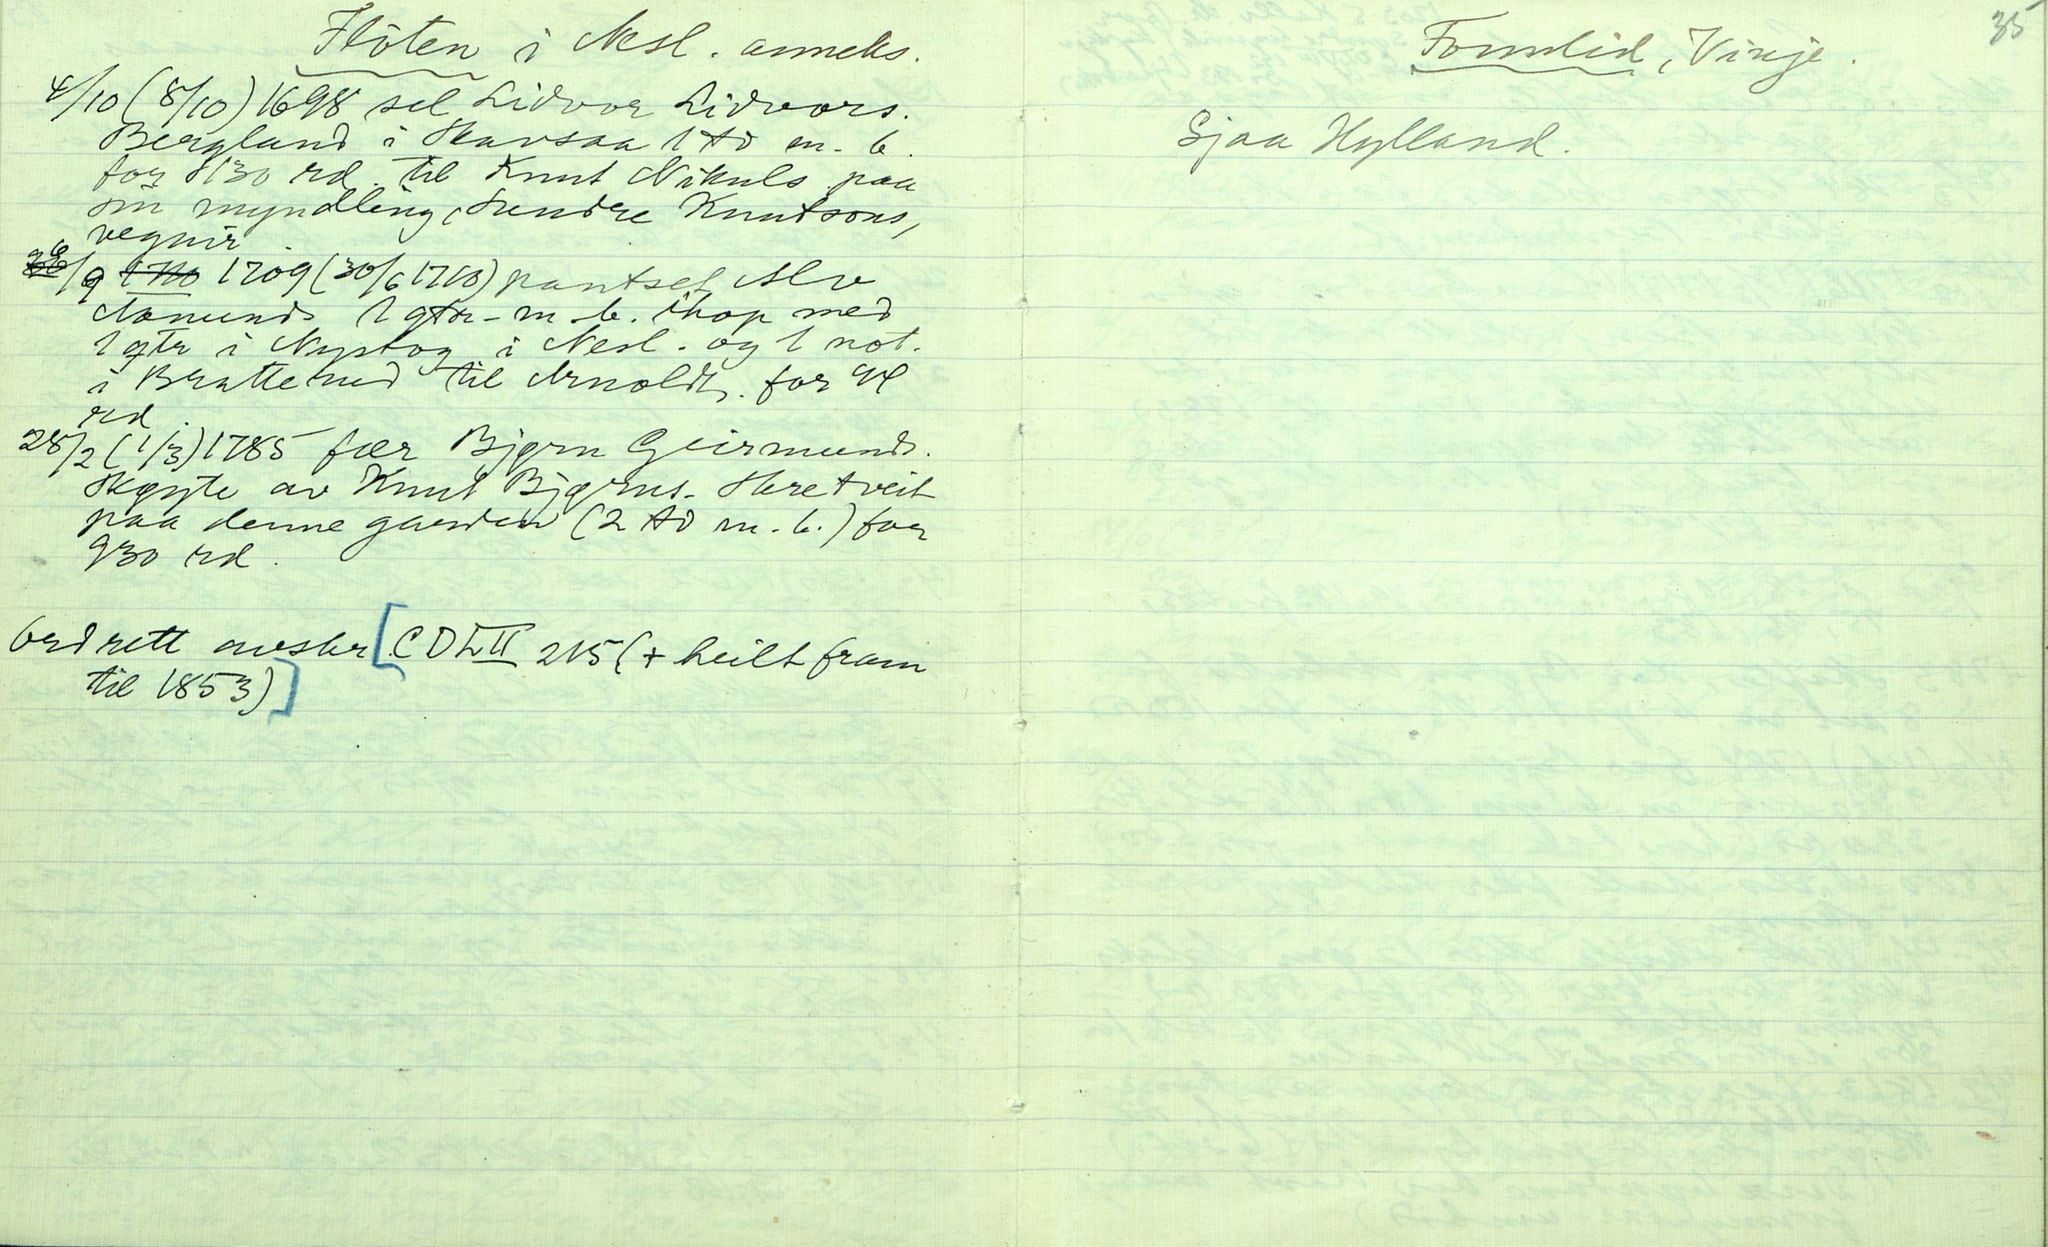 Flöten i Nesl. anneks.
4/10 (8/10) 1698 sel Lidvor Lidvors.
Bergland i Skavsaa 1 td m.b.
for 130 rd. til Knut Nikuls paa
sin myndling, Sundre Knutsons,
vegnir
26/9 1709 (30/6 1710) pantset Alv
Aamunds 1 qtr m.b. ihop med
1 qtr i Nystog i Nesl. og 1 not.
i Bratterud til Arnolds. for 94
rd.
28/2 (1/3) 1785 fær Bjørn Geirmunds.
Skøyte av Knut Bjørns. Haretveit
paa denne garden (2 td m.b.) for
930 rd.
Ordrett avskr [CDL II 215 (+ heilt fram
til 1853)]
35
Fomlid, Vinje.
Sjaa Hylland.